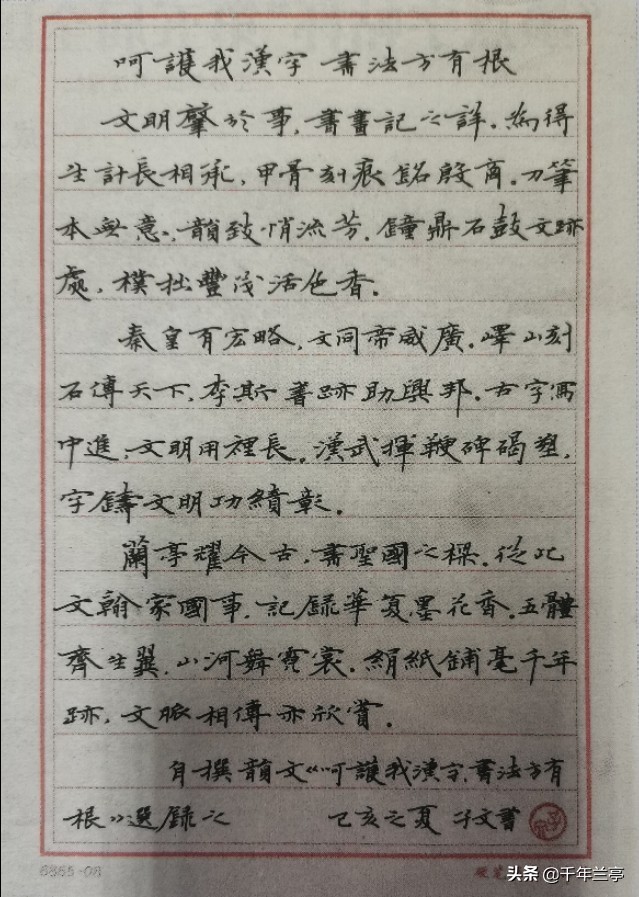 呵護我漢字 書法方有根
文明肇於事，書畫記之詳。為得
生計長相承，甲骨刻痕銘殷商。刀筆
本無意，韻致悄流芳。鐘鼎石鼓文跡
處，樸拙豐茂活色香。
秦皇有宏略，文同帝威廣。嶧山刻
石傳天下，李斯書跡助興邦。古字寫
中進，文明用裡長。漢武揮鞭碑碣塑，
字鑄文明功績彰。
蘭亭耀今古，書聖國之樑。從此
文翰家國事，記録華夏墨花香。五體
齊生翼，山河舞霓裳。絹紙鋪毫千年
跡，文脈相傳亦欣賞。
自撰韻文《呵護我漢字，書法方有
根》選録之 己亥之夏 子文書
6865-08
头条@千年兰亭